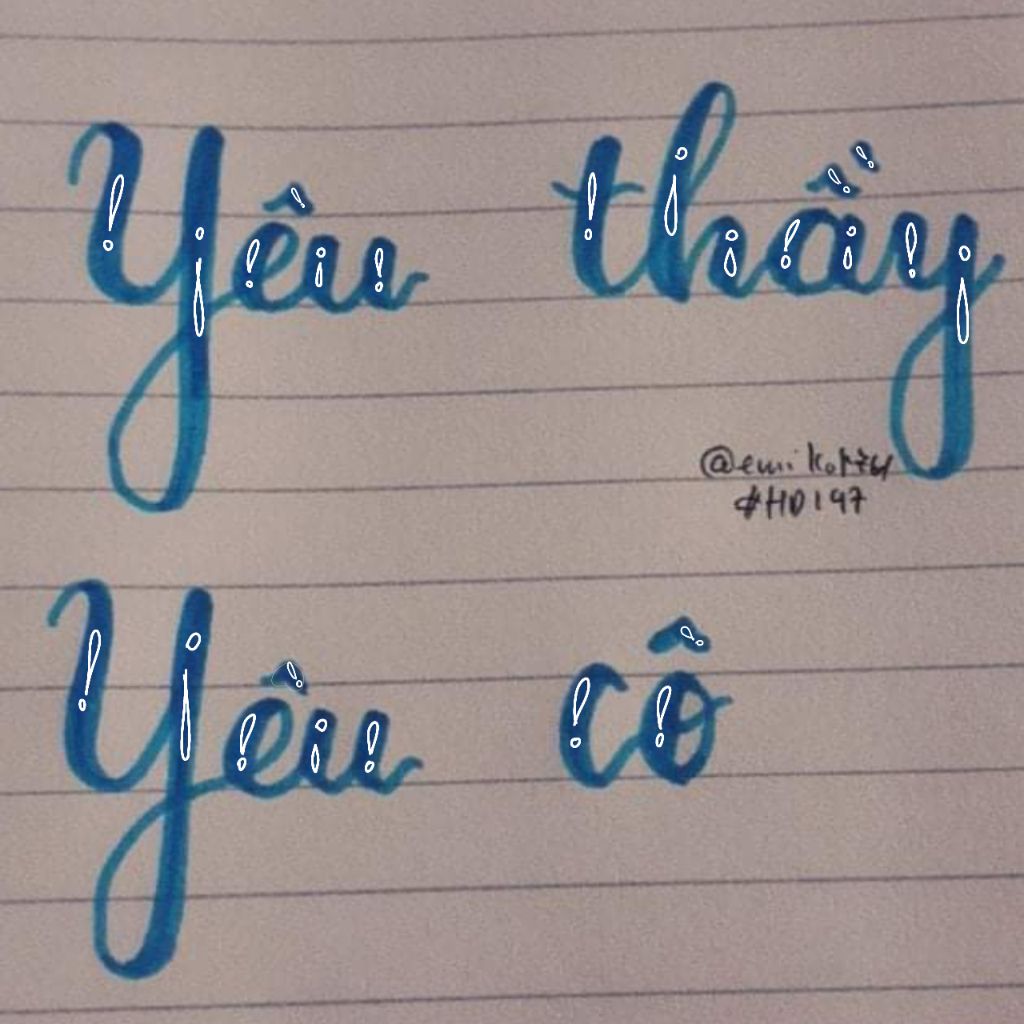 Yêu thầy
#HD197
Yêu cô